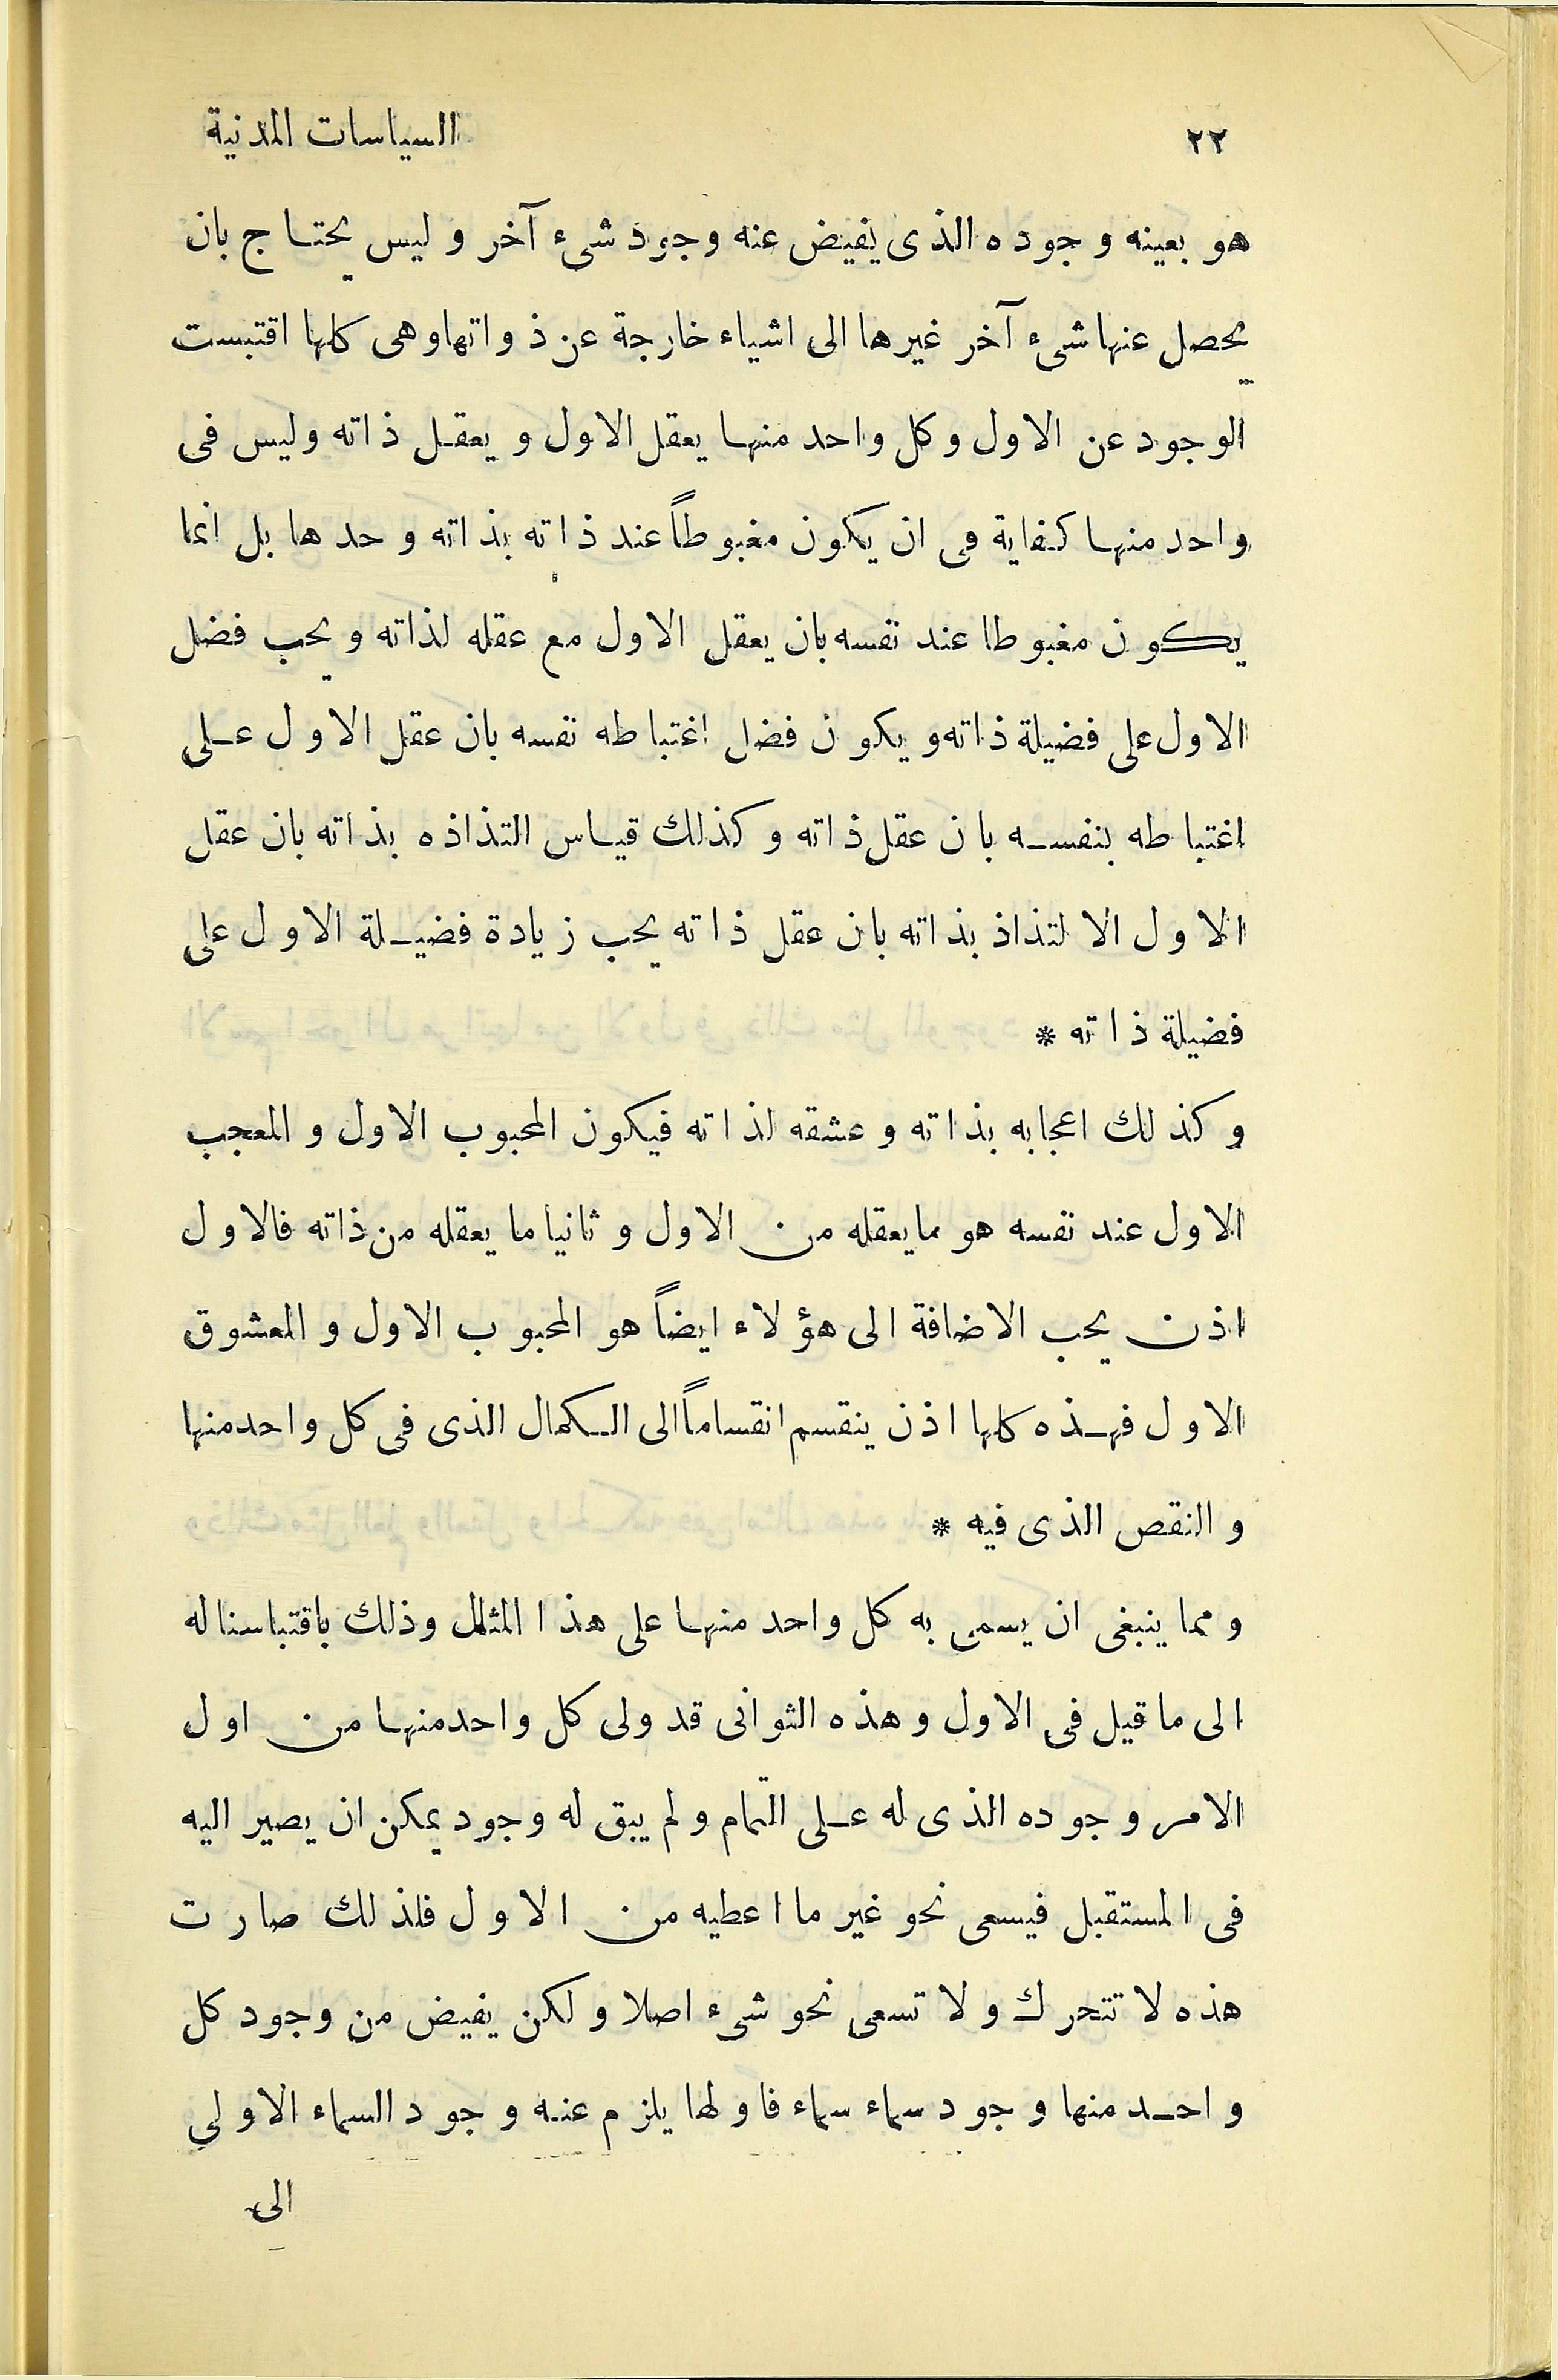 ٢٢ السياسات المدنية
هو بعينه وجوده الذى يفيض عنه وجود شىء آخر و ليس يحتاج بان
يحصل عنها شىء آخر غيرها الى اشياء خارجة عن ذواتها وهى كلها اقتبست
الوجود عن الاول وكل واحد منها يعقل الاول و يعقل ذاته وليس فى
واحد منها كفاية فى ان يكون مغبوطاً عند ذاته بذاته وحدها بل انما
يكون مغبوطا عند نفسه بان يعقل الاول مع عقله لذاته و يحب فضل
الاول على فضيلة ذاته و يكون فضل اغتباطه نفسه بان عقل الاول على
اغتباطه بنفسه بان عقل ذاته و كذلك قياس التذاذه بذاته بان عقل
الاول الالتذاذ بذاته بان عقل ذاته يحب زيادة فضيلة الاول على
فضيلة ذاته *
و كذلك اعجابه بذاته و عشقه لذاته فيكون المحبوب الاول و المعجب
الاول عند نفسه هو مايعقله من الاول و ثانيا ما يعقله من ذاته فالاول
اذن يحب الاضافة الى هؤلاء ايضاً هو المحبوب الاول و المعشوق
الاول فهذه كلها اذن ينقسم انقساماً الى الكمال الذى فى كل واحد منها
و النقص الذى فيه *
و مما ينبغى ان يسمى به كل واحد منها على هذا المثال وذلك باقتباسنا له
الى ما قيل فى الاول و هذه الثوانى قد ولى كل واحد منها من اول
الامر وجوده الذى له على التمام و لم يبق له وجود يمكن ان يصير اليه
فى المستقبل فيسعى نحو غير ما اعطيه من الاول فلذلك صارت
هذه لا تتحرك و لا تسعى نحو شىء اصلا و لكن يفيض من وجود كل
واحد منها وجود سماء سماء فاولها يلزم عنه وجود السماء الاولى
الى